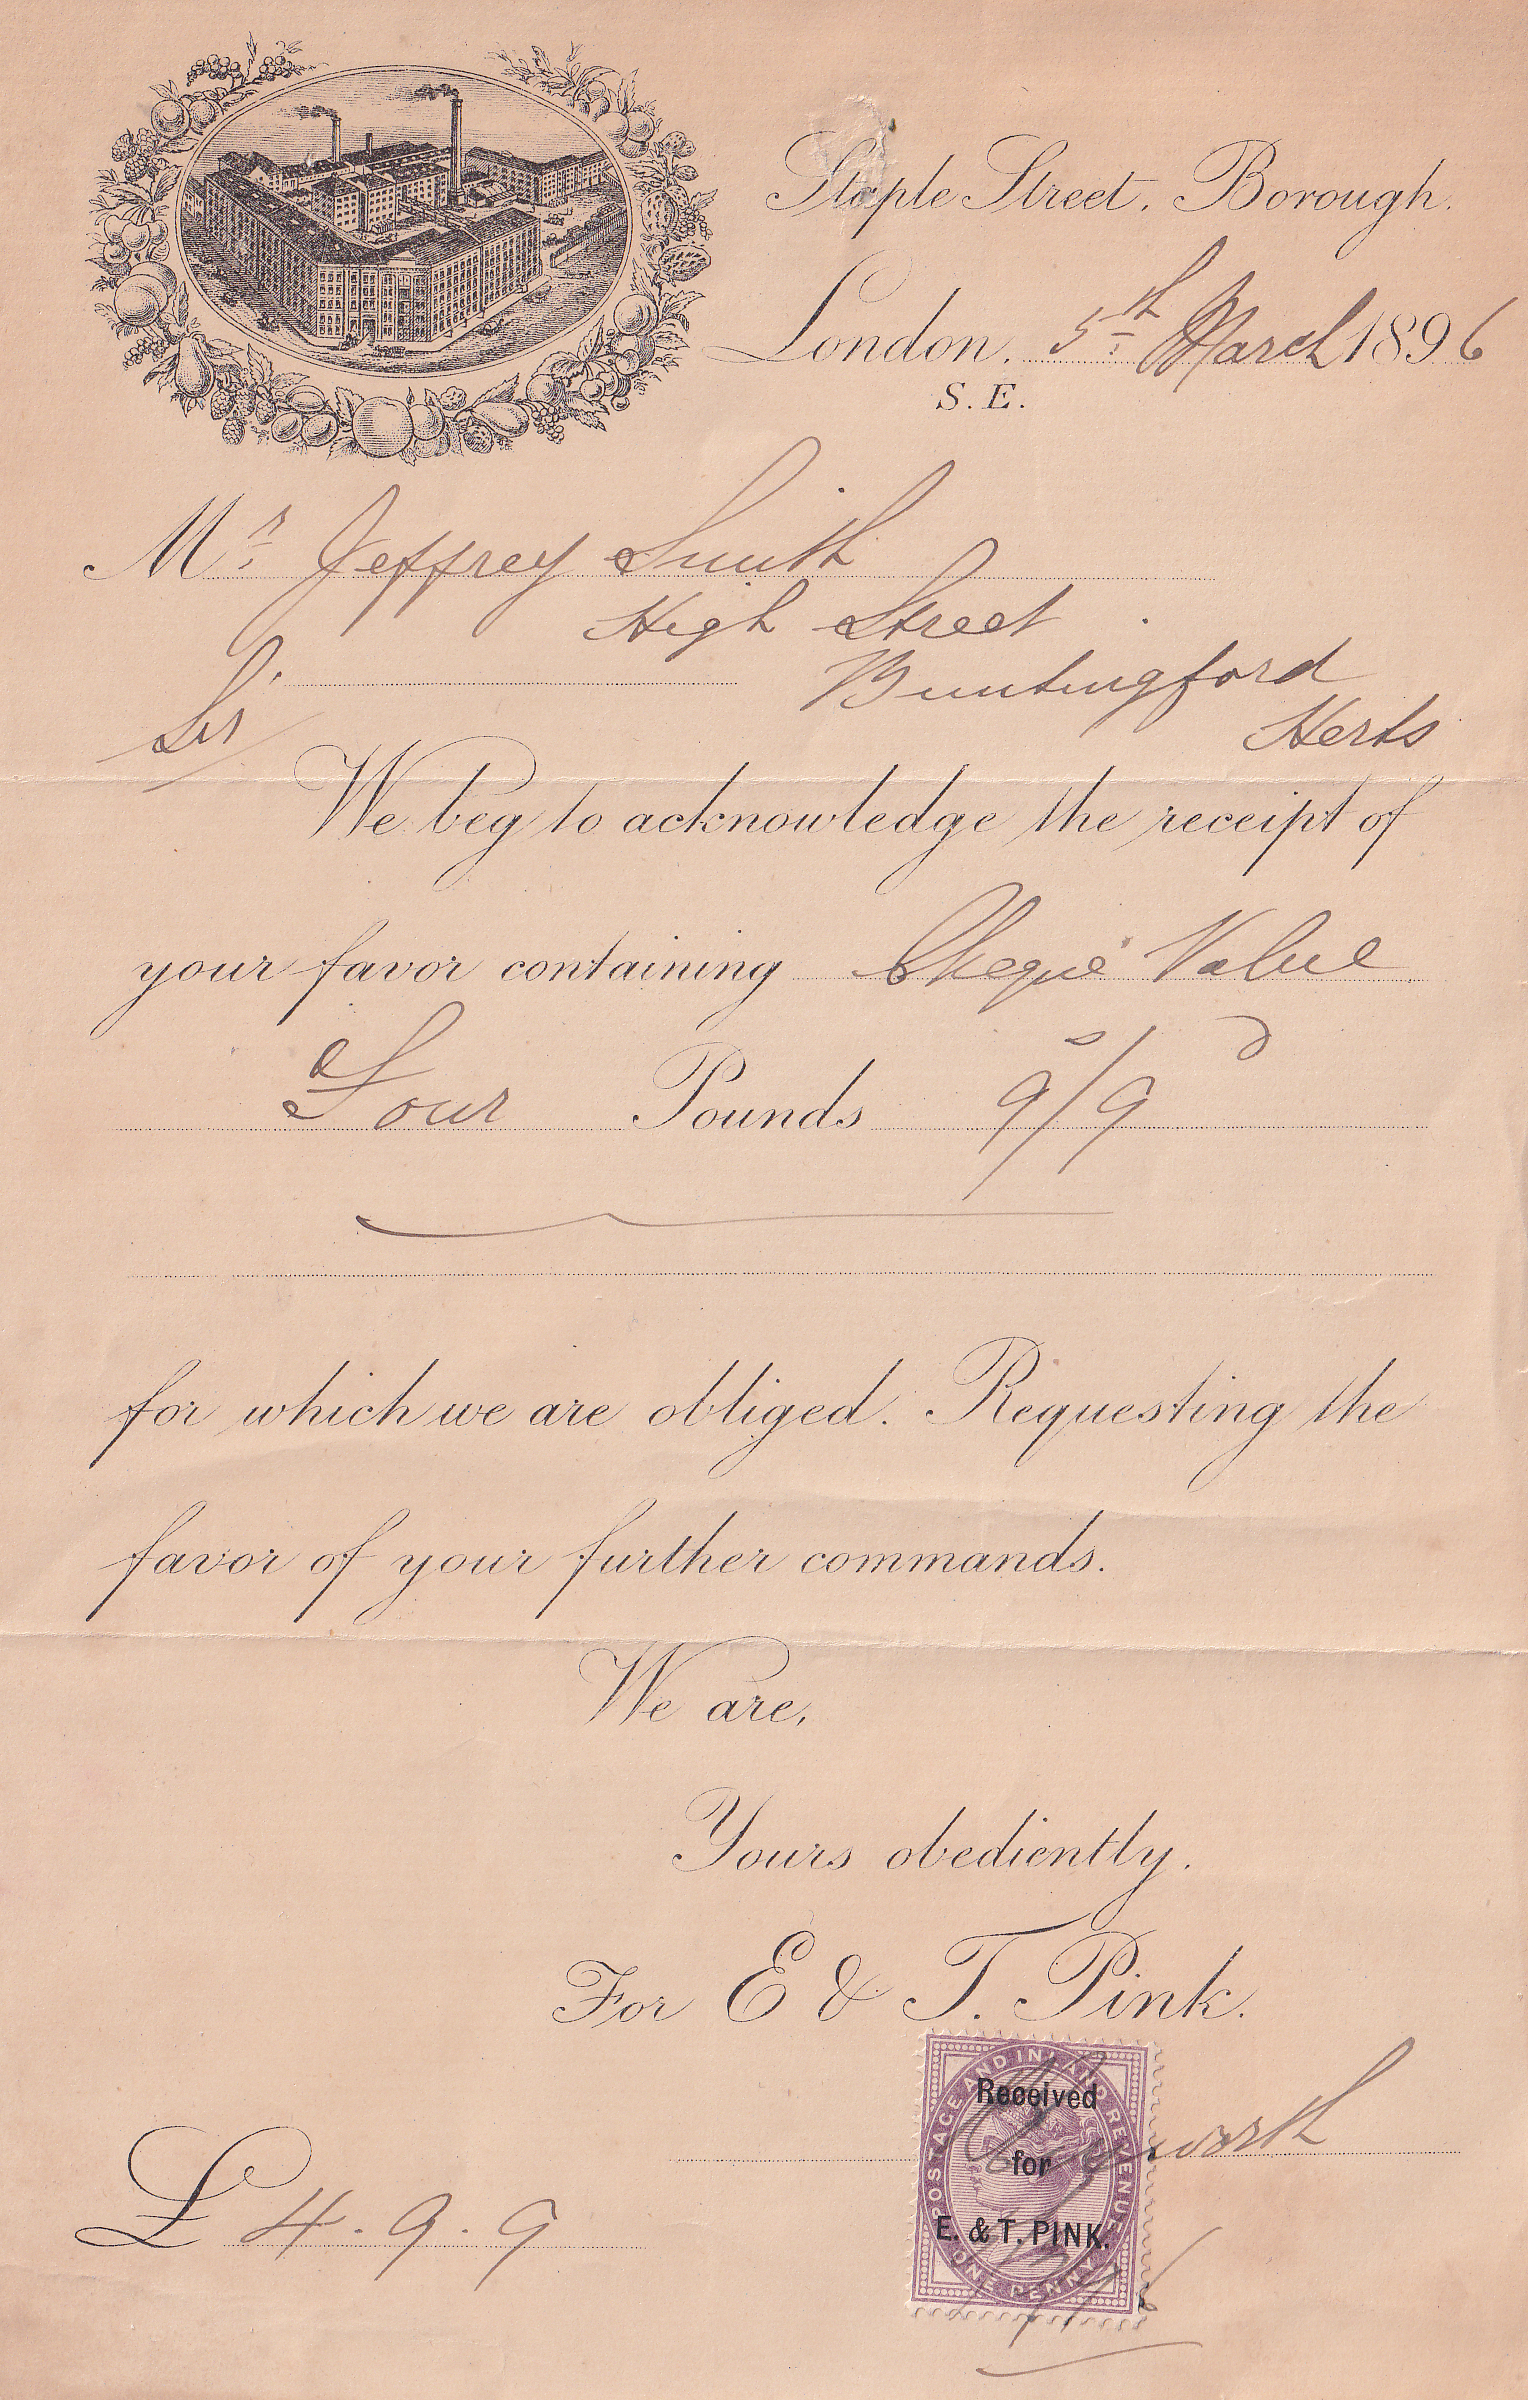 Staple Street, Borough.
London. 5th March 1896
S.E.
Mr Jeffrey Smith
High Street
Buntingford
Herts
Sir
We beg to acknowledge the receipt of
your favor containing Cheque Value
Four Pounds 9s/9d
for which we are obliged. Requesting the
favor of your further commands.
We are,
Yours obediently.
For E & T. Pink.
POSTAGE AND INLAND REVENUE
Received
for
E. & T. PINK.
ONE PENNY
£ 4.9.9